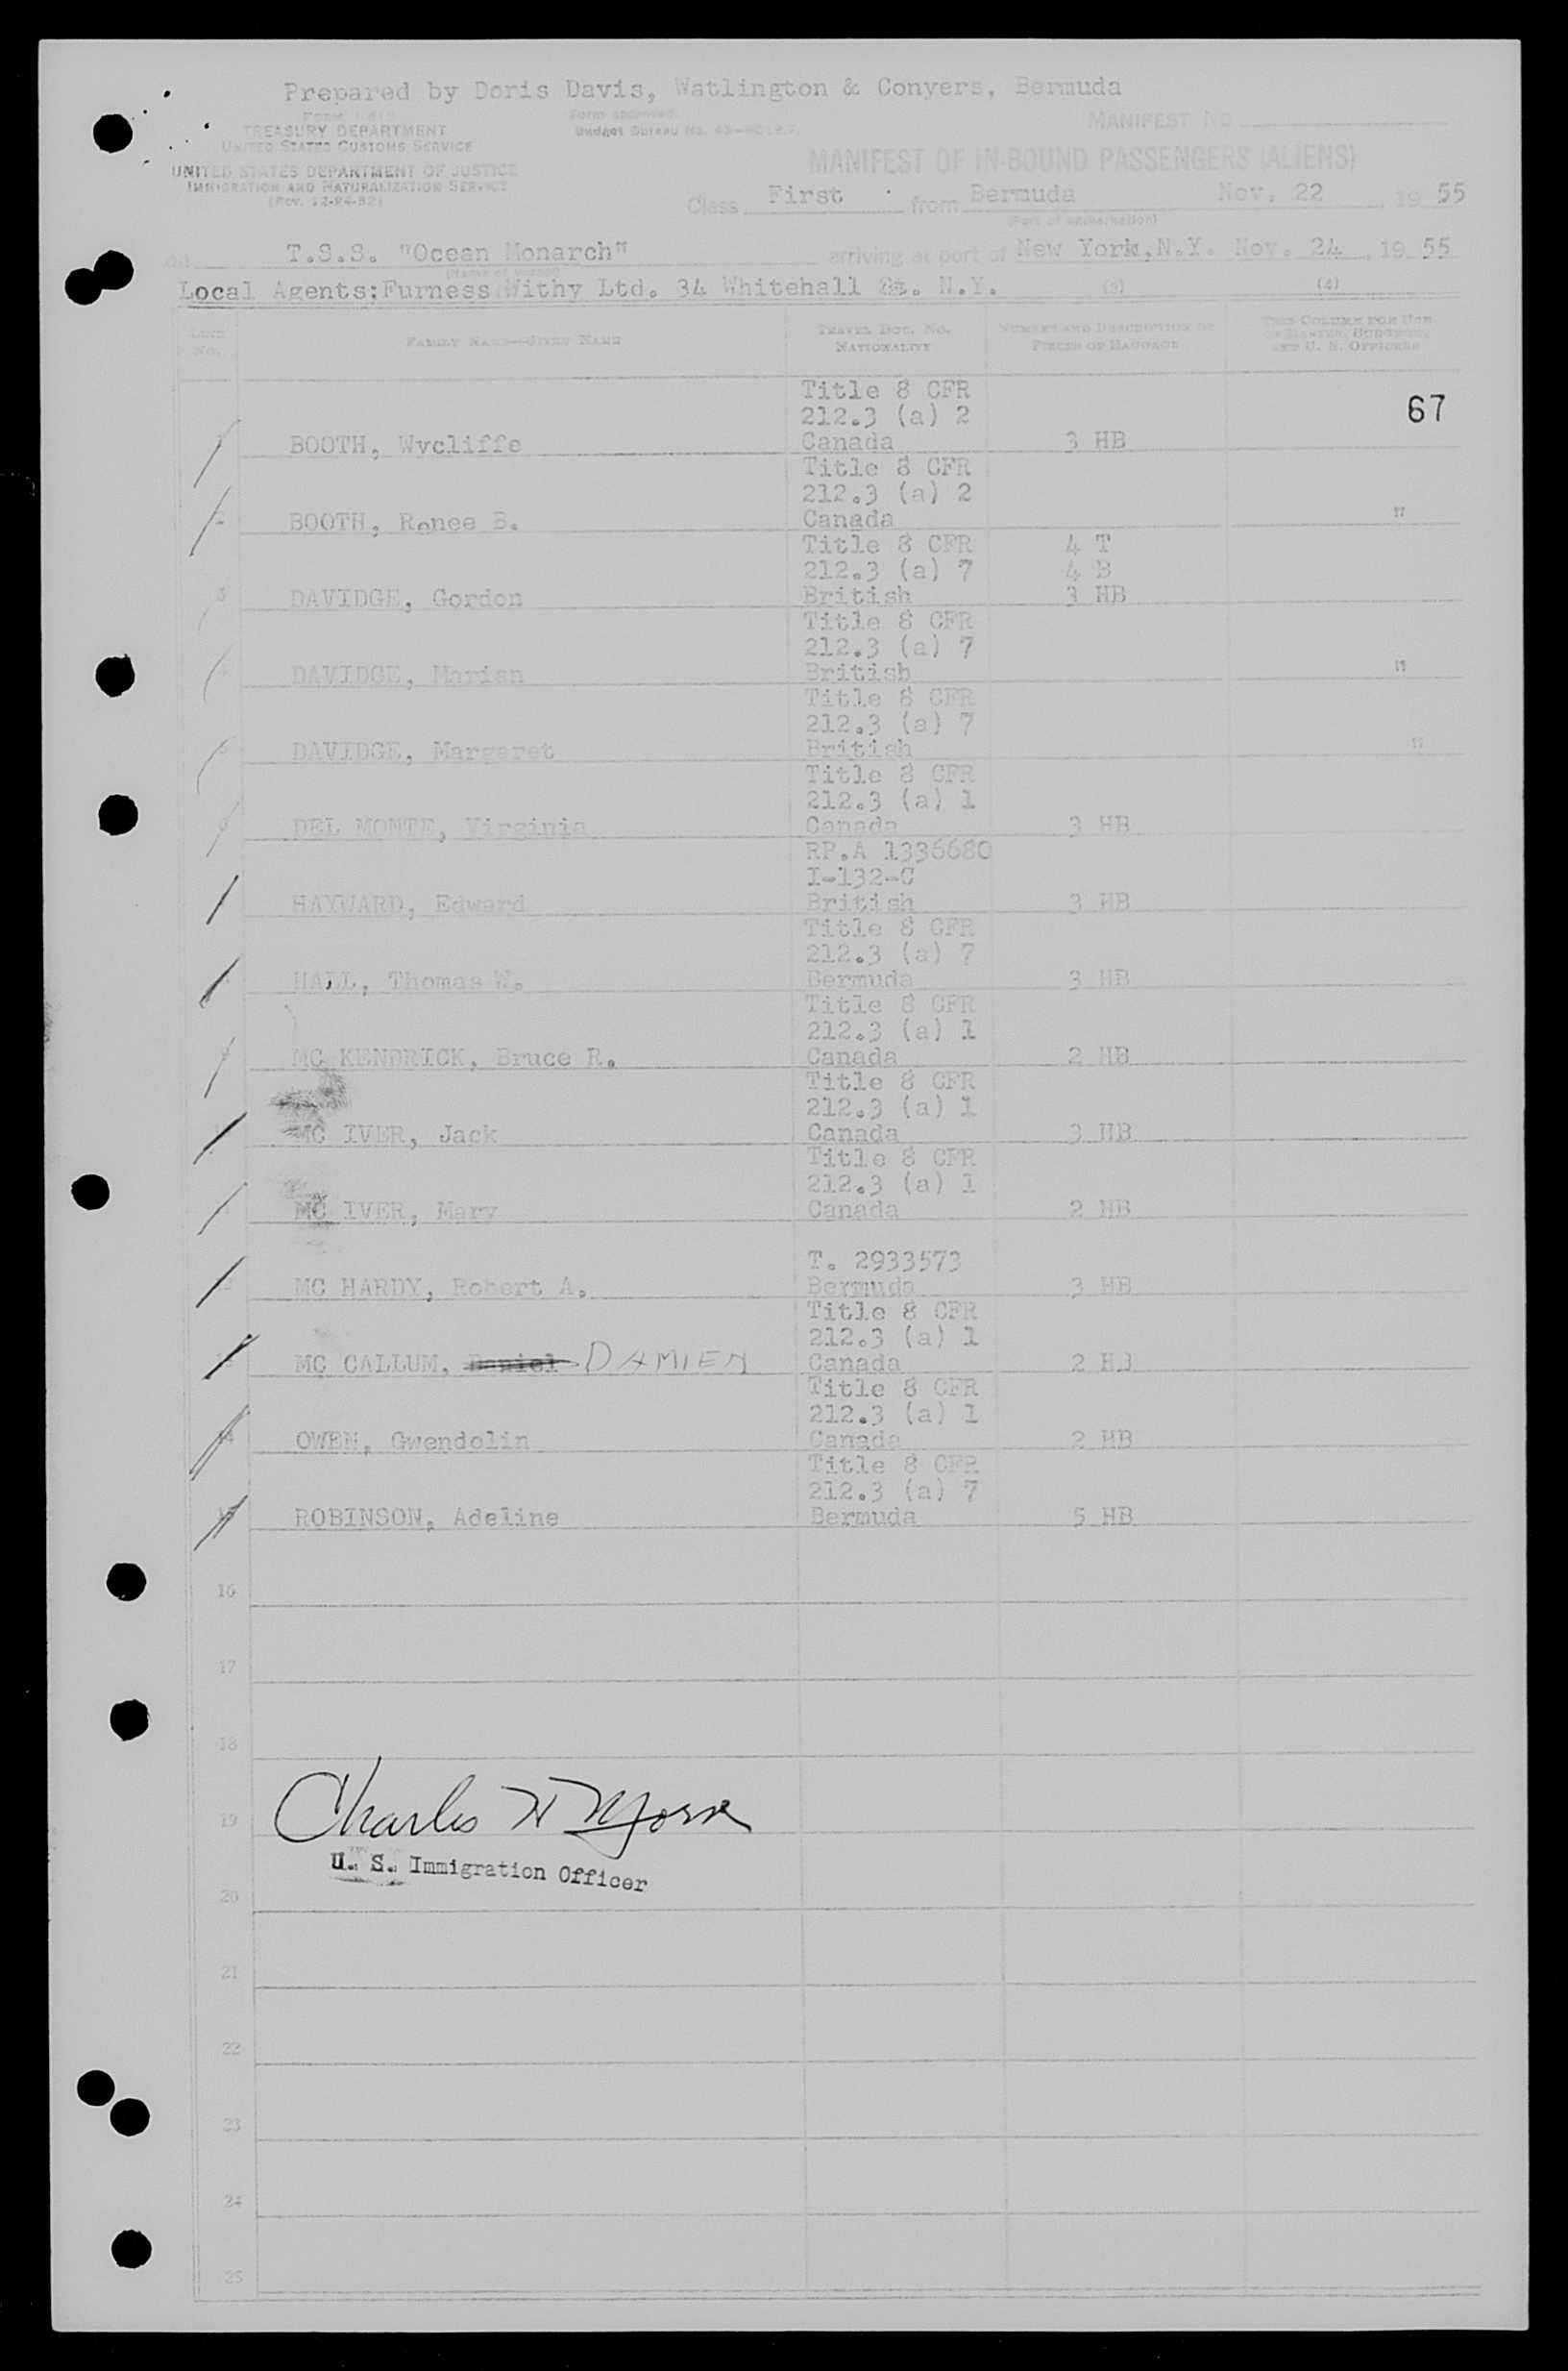 Prepared by Doris Davis, Watlington & Conyers, Bermuda
TREASURY DEPARTMENT
UNITED STATES CUSTOMS SERVICE
Form approved.
Budget Bureau No.
MANIFEST No.
UNITED STATES DEPARTMENT OF JUSTICE
IMMIGRATION AND NATURALIZATION SERVICE
(Rev. 12-24-52)
MANIFEST OF IN-BOUND PASSENGERS (ALIENS)
Class First from Bermuda Nov. 22, 19 55
(Port of embarkation)
on T.S.S. "Ocean Monarch" arriving at port of New York, N.Y. Nov. 24, 19 55
(Name of vessel)
Local Agents; Furness Withy Ltd. 34 Whitehall St. N.Y. (3) (4)
LINE No. FAMILY NAME—GIVEN NAME TRAVEL DOC. NO. NATIONALITY NUMBER AND DESCRIPTION OF PIECES OF BAGGAGE THIS COLUMN FOR USE OF MASTER, SURGEON, AND U. S. OFFICERS
67
Title 8 CFR
212.3 (a) 2
1 BOOTH, Wycliffe Canada 3 HB
Title 8 CFR
212.3 (a) 2
2 BOOTH, Renee B. Canada "
Title 8 CFR 4 T
212.3 (a) 7 4 B
3 DAVIDGE, Gordon British 3 HB
Title 8 CFR
212.3 (a) 7
4 DAVIDGE, Marian British "
Title 8 CFR
212.3 (a) 7
5 DAVIDGE, Margaret British "
Title 8 CFR
212.3 (a) 1
6 DEL MONTE, Virginia Canada 3 HB
RP.A 1336680
I-132-C
HAYWARD, Edward British 3 HB
Title 8 CFR
212.3 (a) 7
HALL, Thomas W. Bermuda 3 HB
Title 8 CFR
212.3 (a) 1
MC KENDRICK, Bruce R. Canada 2 HB
Title 8 CFR
212.3 (a) 1
MC IVER, Jack Canada 3 HB
Title 8 CFR
212.3 (a) 1
MC IVER, Mary Canada 2 HB
T. 2933573
MC HARDY, Robert A. Bermuda 3 HB
Title 8 CFR
212.3 (a) 1
MC CALLUM, Daniel DAMIEN Canada 2 HB
Title 8 CFR
212.3 (a) 1
14 OWEN, Gwendolin Canada 2 HB
Title 8 CFR
212.3 (a) 7
ROBINSON, Adeline Bermuda 5 HB
16
17
18
19 Charles
U. S. Immigration Officer
20
21
22
23
24
25